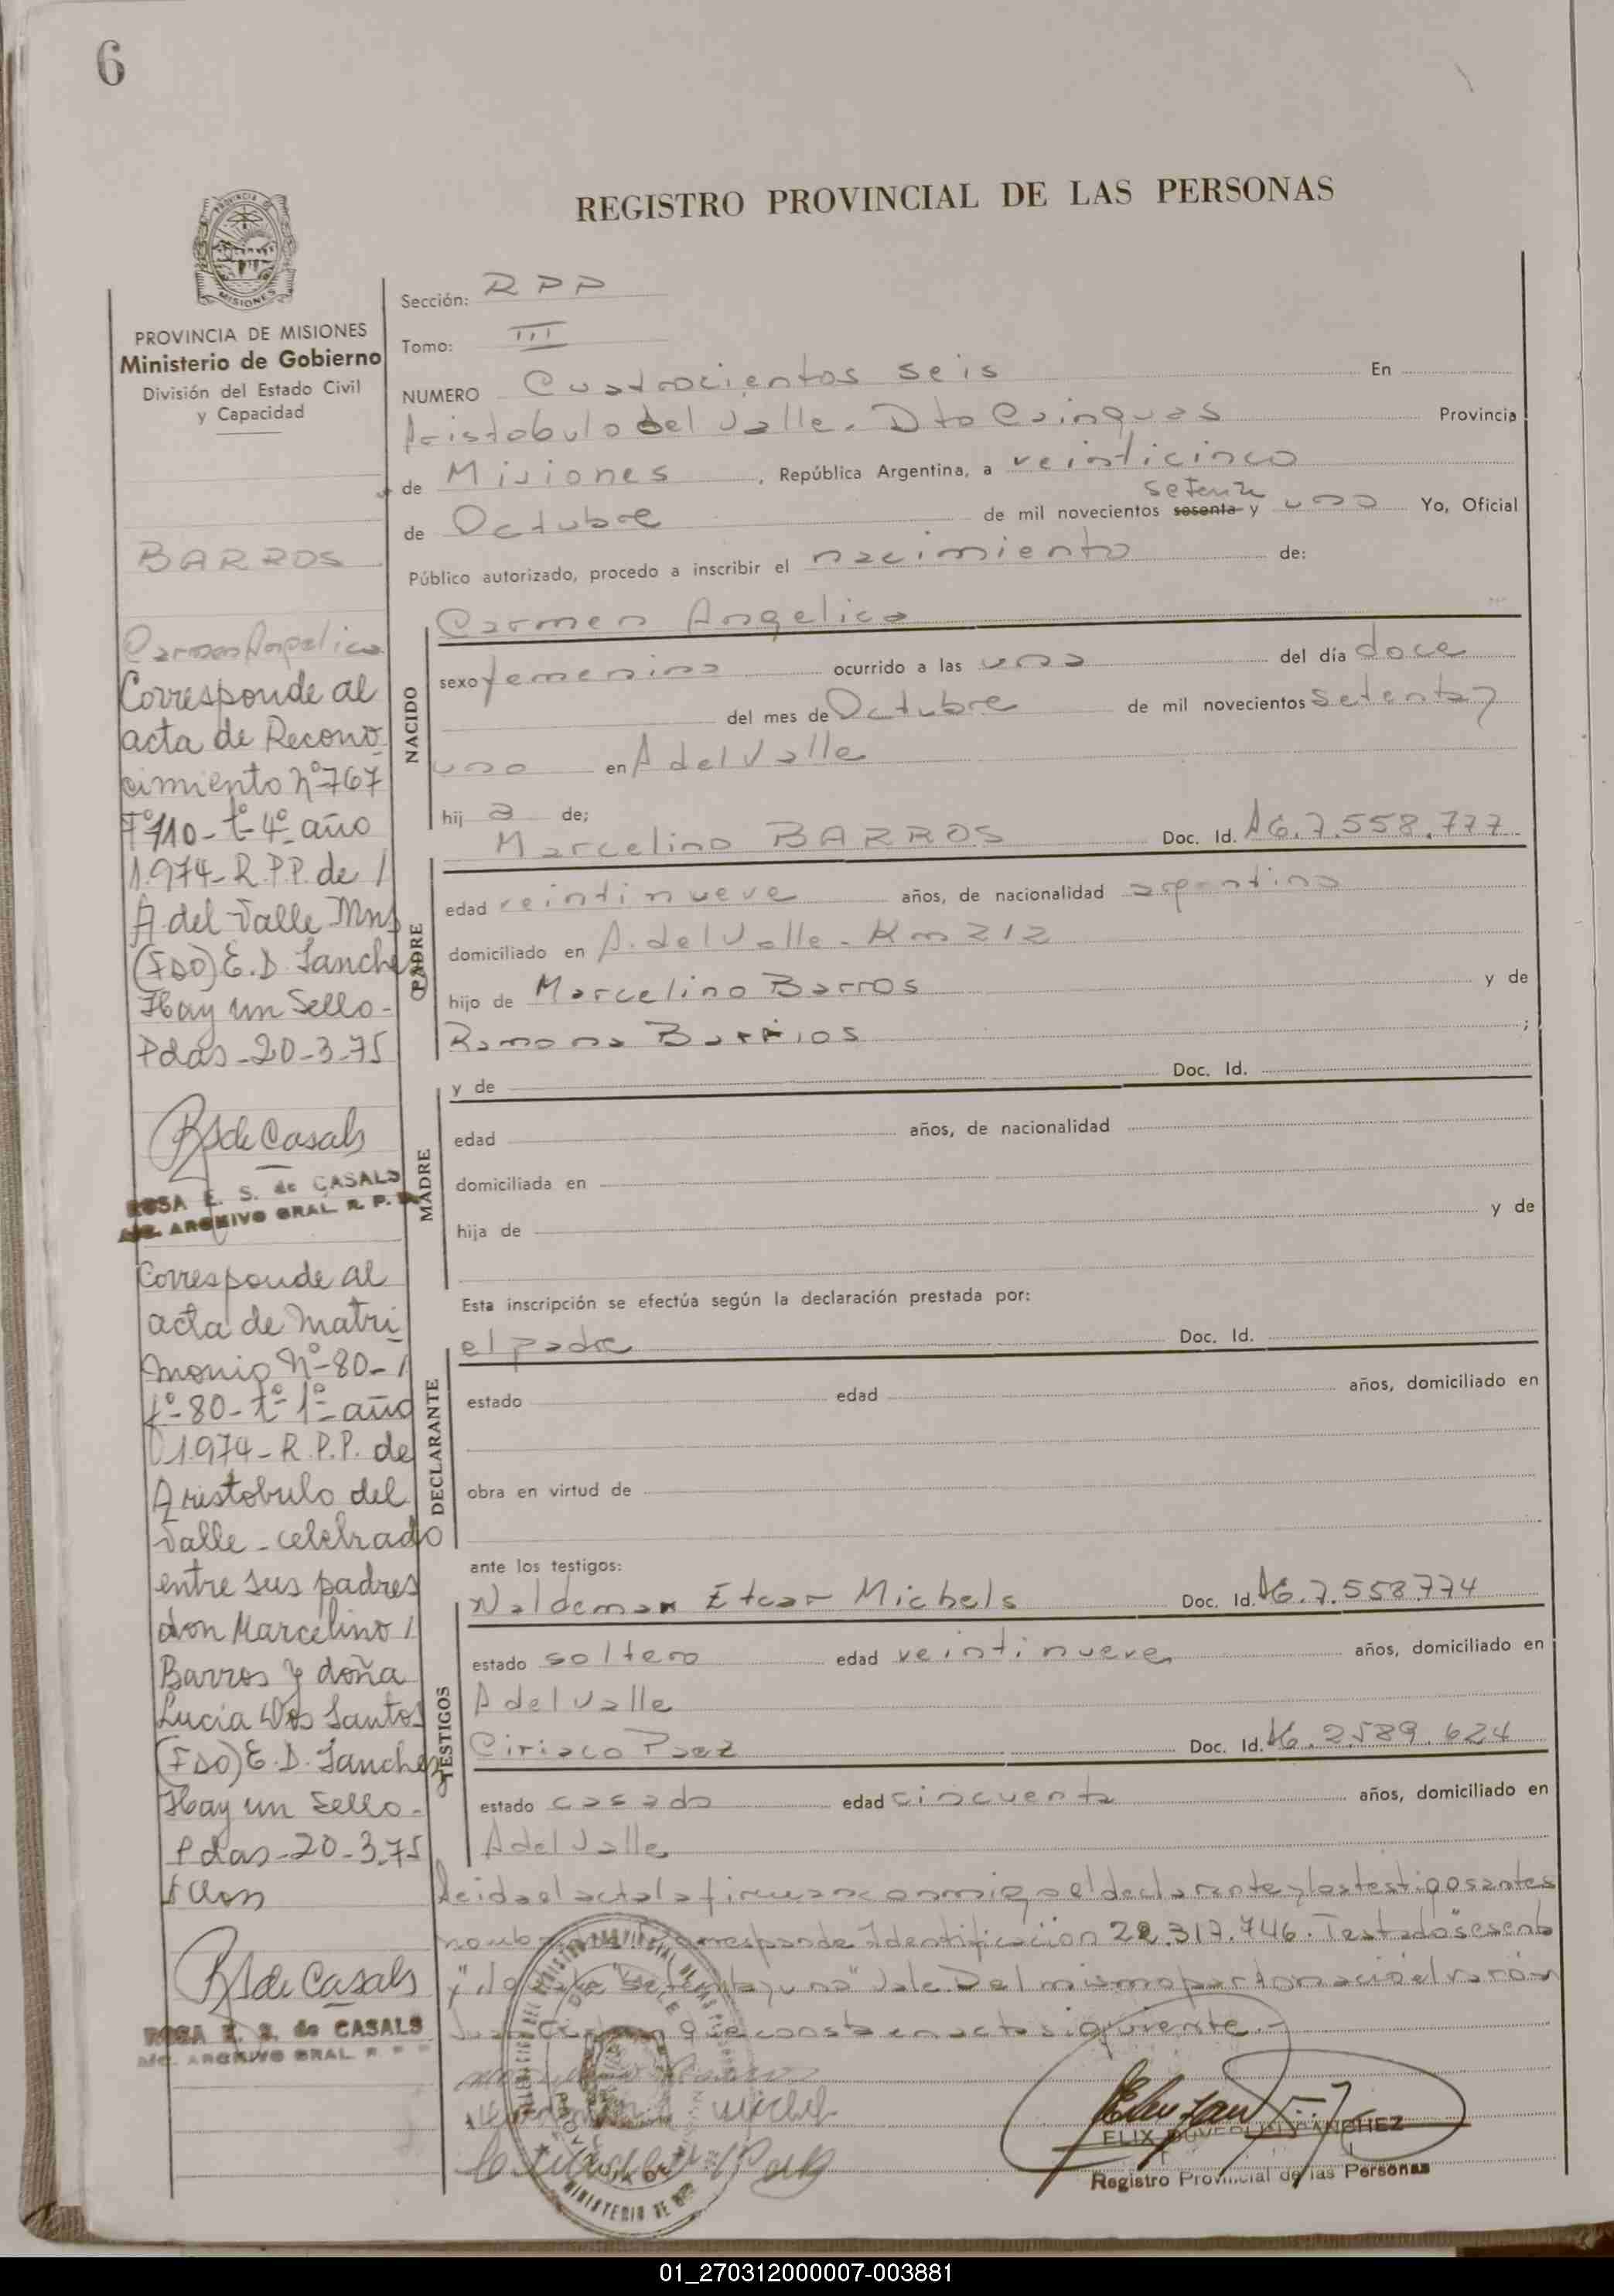 6
REGISTRO PROVINCIAL DE LAS PERSONAS
MISIONES
PROVINCIA DE MISIONES
Ministerio de Gobierno
División del Estado Civil
y Capacidad
BARROS
Carmen Angelica
Corresponde al
acta de Recono
cimiento nº 767
Fº 710 - tº 4º año
1.974 - R.P.P. de /
A. del Valle Mns
(FDO) E. D. Sanchez
Hay un Sello -
Pdas - 20-3-75
RSdeCasals
ROSA E. S. de CASALS
ARCHIVO GRAL. R. P. P.
Corresponde al
acta de Matri
monio Nº 80 - /
fº 80 - tº 1º año
1.974 - R.P.P. de
Aristobulo del
Valle - celebrado
entre sus padres
don Marcelino /
Barros y doña
Lucia Dos Santos
(FDO) E. D. Sanchez
Hay un Sello -
Pdas - 20-3-75
RSdeCasals
ROSA E. S. de CASALS
ARCHIVO GRAL. R. P. P.
Sección: RPP
Tomo: III
NUMERO Cuatrocientos seis En
Aristobulo del Valle. Dto Cainguas Provincia
de Misiones, República Argentina, a veinticinco
setenta
de Octubre de mil novecientos sesenta y uno Yo, Oficial
Público autorizado, procedo a inscribir el nacimiento de:
NACIDO
Carmen Angelica
sexo femenino ocurrido a las una del día doce
del mes de Octubre de mil novecientos setenta y
uno en A del Valle
hij a de;
PADRE
Marcelino BARROS Doc. Id. 7.558.777
edad veintinueve años, de nacionalidad argentina
domiciliado en A. del Valle - Km 212
hijo de Marcelino Barros y de
Ramona Barrios ;
MADRE
y de Doc. Id.
edad años, de nacionalidad
domiciliada en
hija de y de
Esta inscripción se efectúa según la declaración prestada por:
DECLARANTE
el padre Doc. Id.
estado edad años, domiciliado en
obra en virtud de
ante los testigos:
TESTIGOS
Waldemar Etcar Michels Doc. Id. 7.558.774
estado soltero edad veintinueve años, domiciliado en
A del Valle
Ciriaco Paez Doc. Id. 2.589.624
estado casado edad cincuenta años, domiciliado en
A del Valle
Leida el acta la firman conmigo el declarante y los testigos antes
Corresponde Identificación 22.317.746. Testado "sesenta
y "setenta y uno" Vale. Del mismo parto nació el varón
Juan que consta en acta siguiente.-
SANCHEZ
Registro Provincial de las Personas
01_270312000007-003881